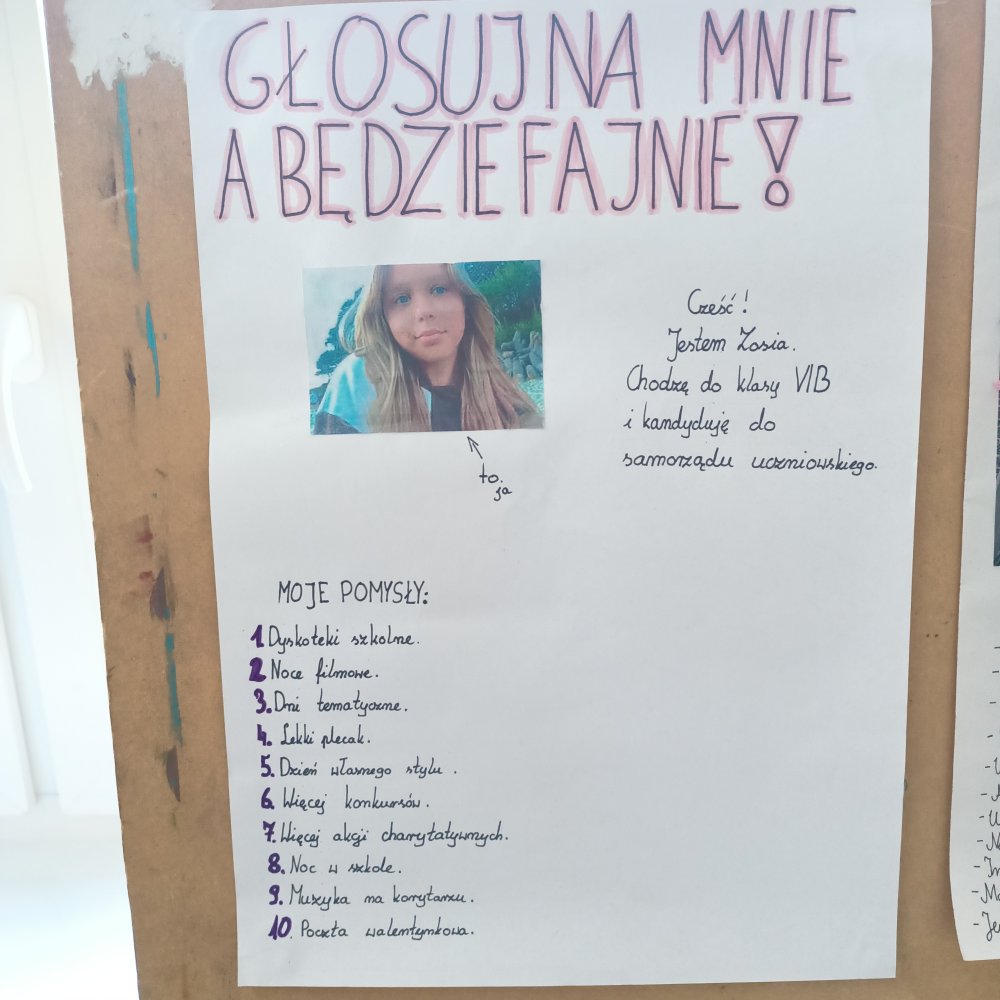 GŁOSUJ NA MNIE
A BĘDZIE FAJNIE!
Cześć!
Jestem Zosia.
Chodzę do klasy VIB
i kandyduję do
samorządu uczniowskiego.
to.
ja
MOJE POMYSŁY:
1. Dyskoteki szkolne.
2. Noce filmowe.
3. Dni tematyczne.
4. Lekki plecak.
5. Dzień własnego stylu.
6. Więcej konkursów.
7. Więcej akcji charytatywnych.
8. Noc w szkole.
9. Muzyka na korytarzu.
10. Poczta walentynkowa.